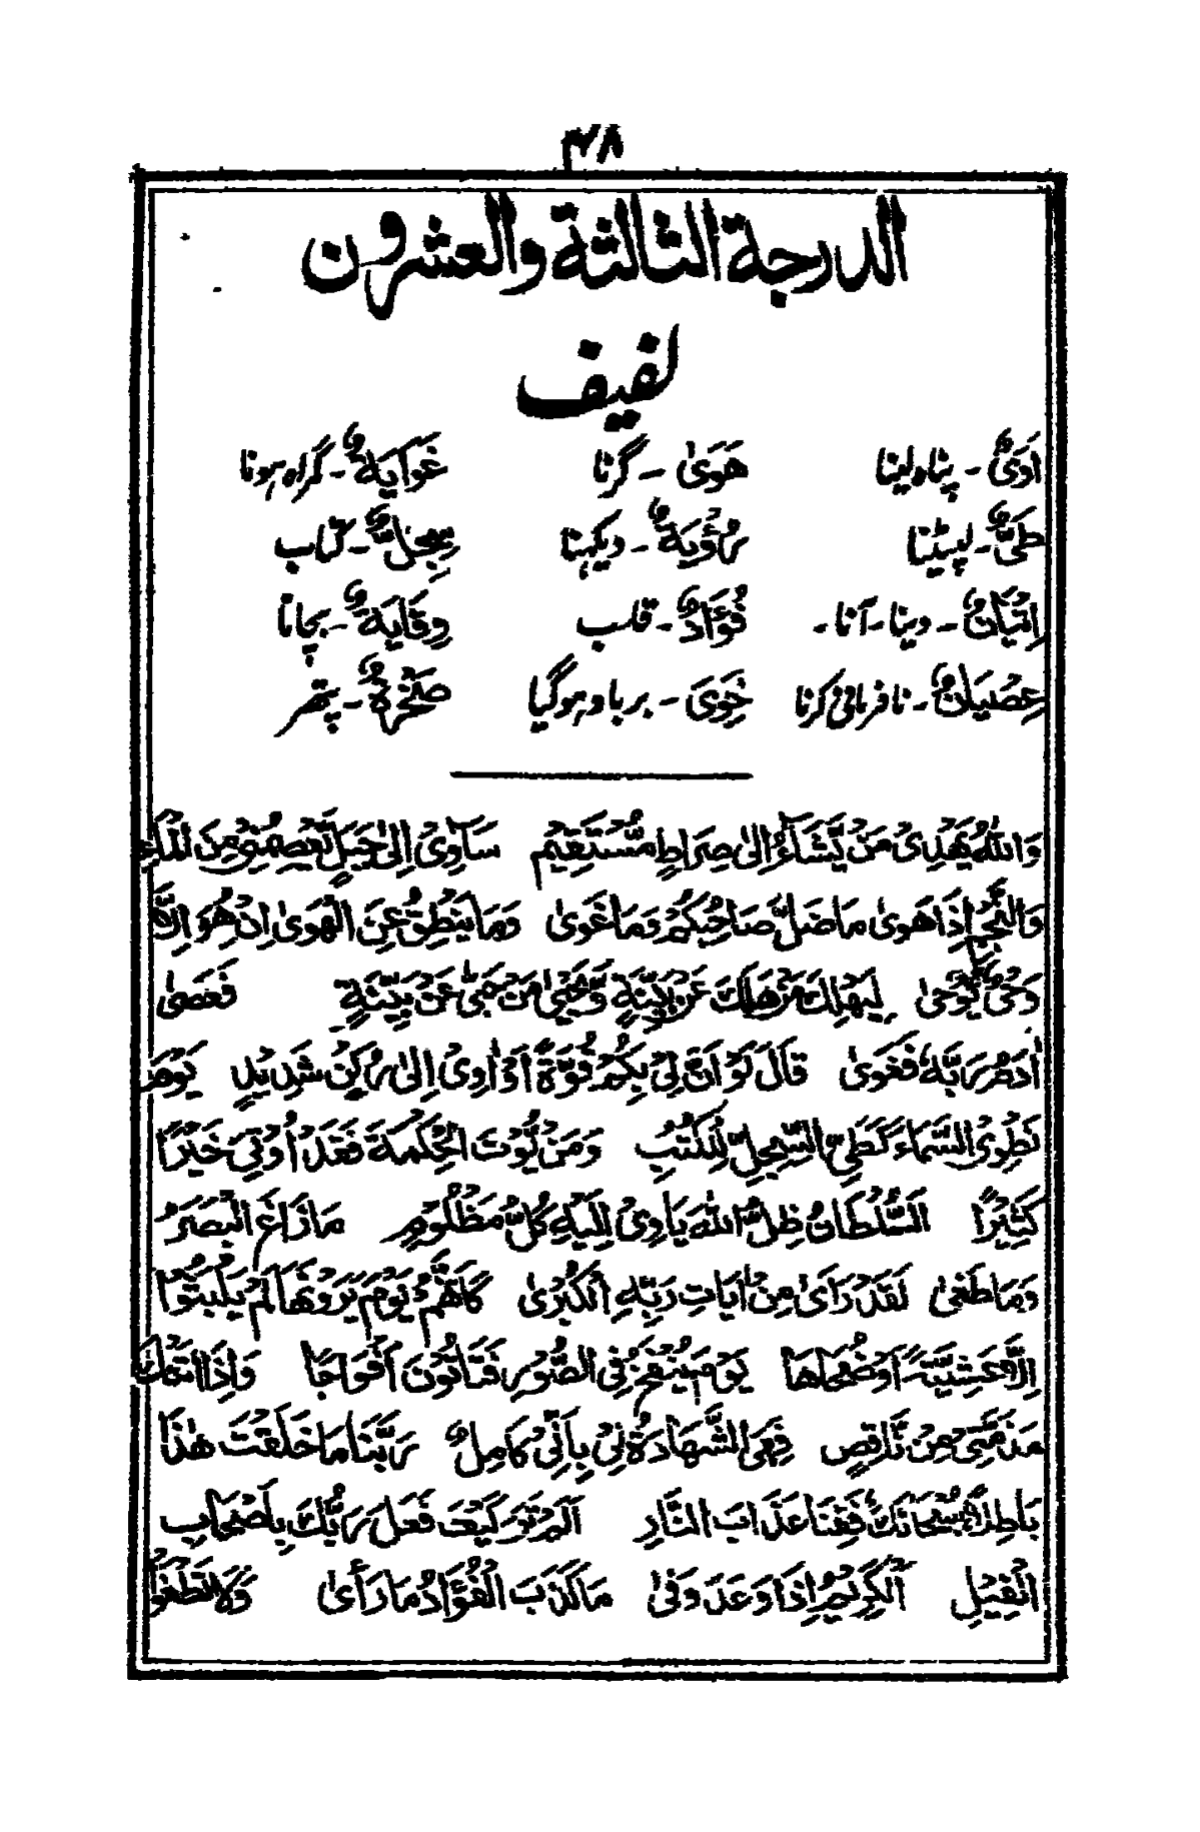 ۴۸
الدرجة الثالثة والعشرون
لفيف
اَوَىٌ - پناہ لینا هَوَىٰ - گرنا غَوَايَةٌ - گمراہ ہونا
طَىٌّ - لپیٹنا رُؤْيَةٌ - دیکہنا سِجِلٌّ - کتاب
اِتْيَانٌ - دینا - آنا - فُؤَادٌ - قلب وِقَايَةٌ - بچانا
عِصْيَانٌ - نافرمانی کرنا خَوِىَ - برباد ہوگیا صَخْرَةٌ - پتھر
وَاللّٰهُ يَهْدِىْ مَنْ يَّشَآءُ اِلىٰ صِرَاطٍ مُّسْتَقِيْمٍ سَآوِىْ اِلىٰ جَبَلٍ يَّعْصِمُنِىْ مِنَ الْمَآءِ
وَالنَّجْمِ اِذَا هَوىٰ مَا ضَلَّ صَاحِبُكُمْ وَمَا غَوىٰ وَمَا يَنْطِقُ عَنِ الْهَوىٰ اِنْ هُوَ اِلَّا
وَحْىٌ يُّوْحىٰ لِيَهْلِكَ مَنْ هَلَكَ عَنْ بَيِّنَةٍ وَّيَحْيىٰ مَنْ حَىَّ عَنْ بَيِّنَةٍ فَعَصىٰ
اٰدَمُ رَبَّهٗ فَغَوىٰ قَالَ لَوْ اَنَّ لِىْ بِكُمْ قُوَّةً اَوْ اٰوِىْ اِلىٰ رُكْنٍ شَدِيْدٍ يَوْمَ
نَطْوِى السَّمَاءَ كَطَىِّ السِّجِلِّ لِلْكُتُبِ وَمَنْ يُّوْتَ الْحِكْمَةَ فَقَدْ اُوْتِىَ خَيْرًا
كَثِيْرًا اَلسُّلْطَانُ ظِلُّ اللّٰهِ يَاوِىْ اِلَيْهِ كُلُّ مَظْلُوْمٍ مَا زَاغَ الْبَصَرُ
وَمَا طَغىٰ لَقَدْ رَاٰى مِنْ اٰيَاتِ رَبِّهِ الْكُبْرىٰ كَاَنَّهُمْ يَوْمَ يَرَوْنَهَا لَمْ يَلْبَثُوْا
اِلَّا عَشِيَّةً اَوْ ضُحَاهَا يَوْمَ يُنْفَخُ فِى الصُّوْرِ فَتَاْتُوْنَ اَفْوَاجًا وَاِذَا اَتَتْكَ
مَذَمَّتِىْ مِنْ نَّاقِصٍ فَهِىَ الشَّهَادَةُ لِىْ بِاَنِّىْ كَامِلٌ رَبَّنَا مَا خَلَقْتَ هٰذَا
بَاطِلًا سُبْحَانَكَ فَقِنَا عَذَابَ النَّارِ اَلَمْ تَرَ كَيْفَ فَعَلَ رَبُّكَ بِاَصْحَابِ
الْفِيْلِ اَلْكَرِيْمُ اِذَا وَعَدَ وَفىٰ مَا كَذَبَ الْفُؤَادُ مَا رَاٰى وَلَا تَطْغَوْا